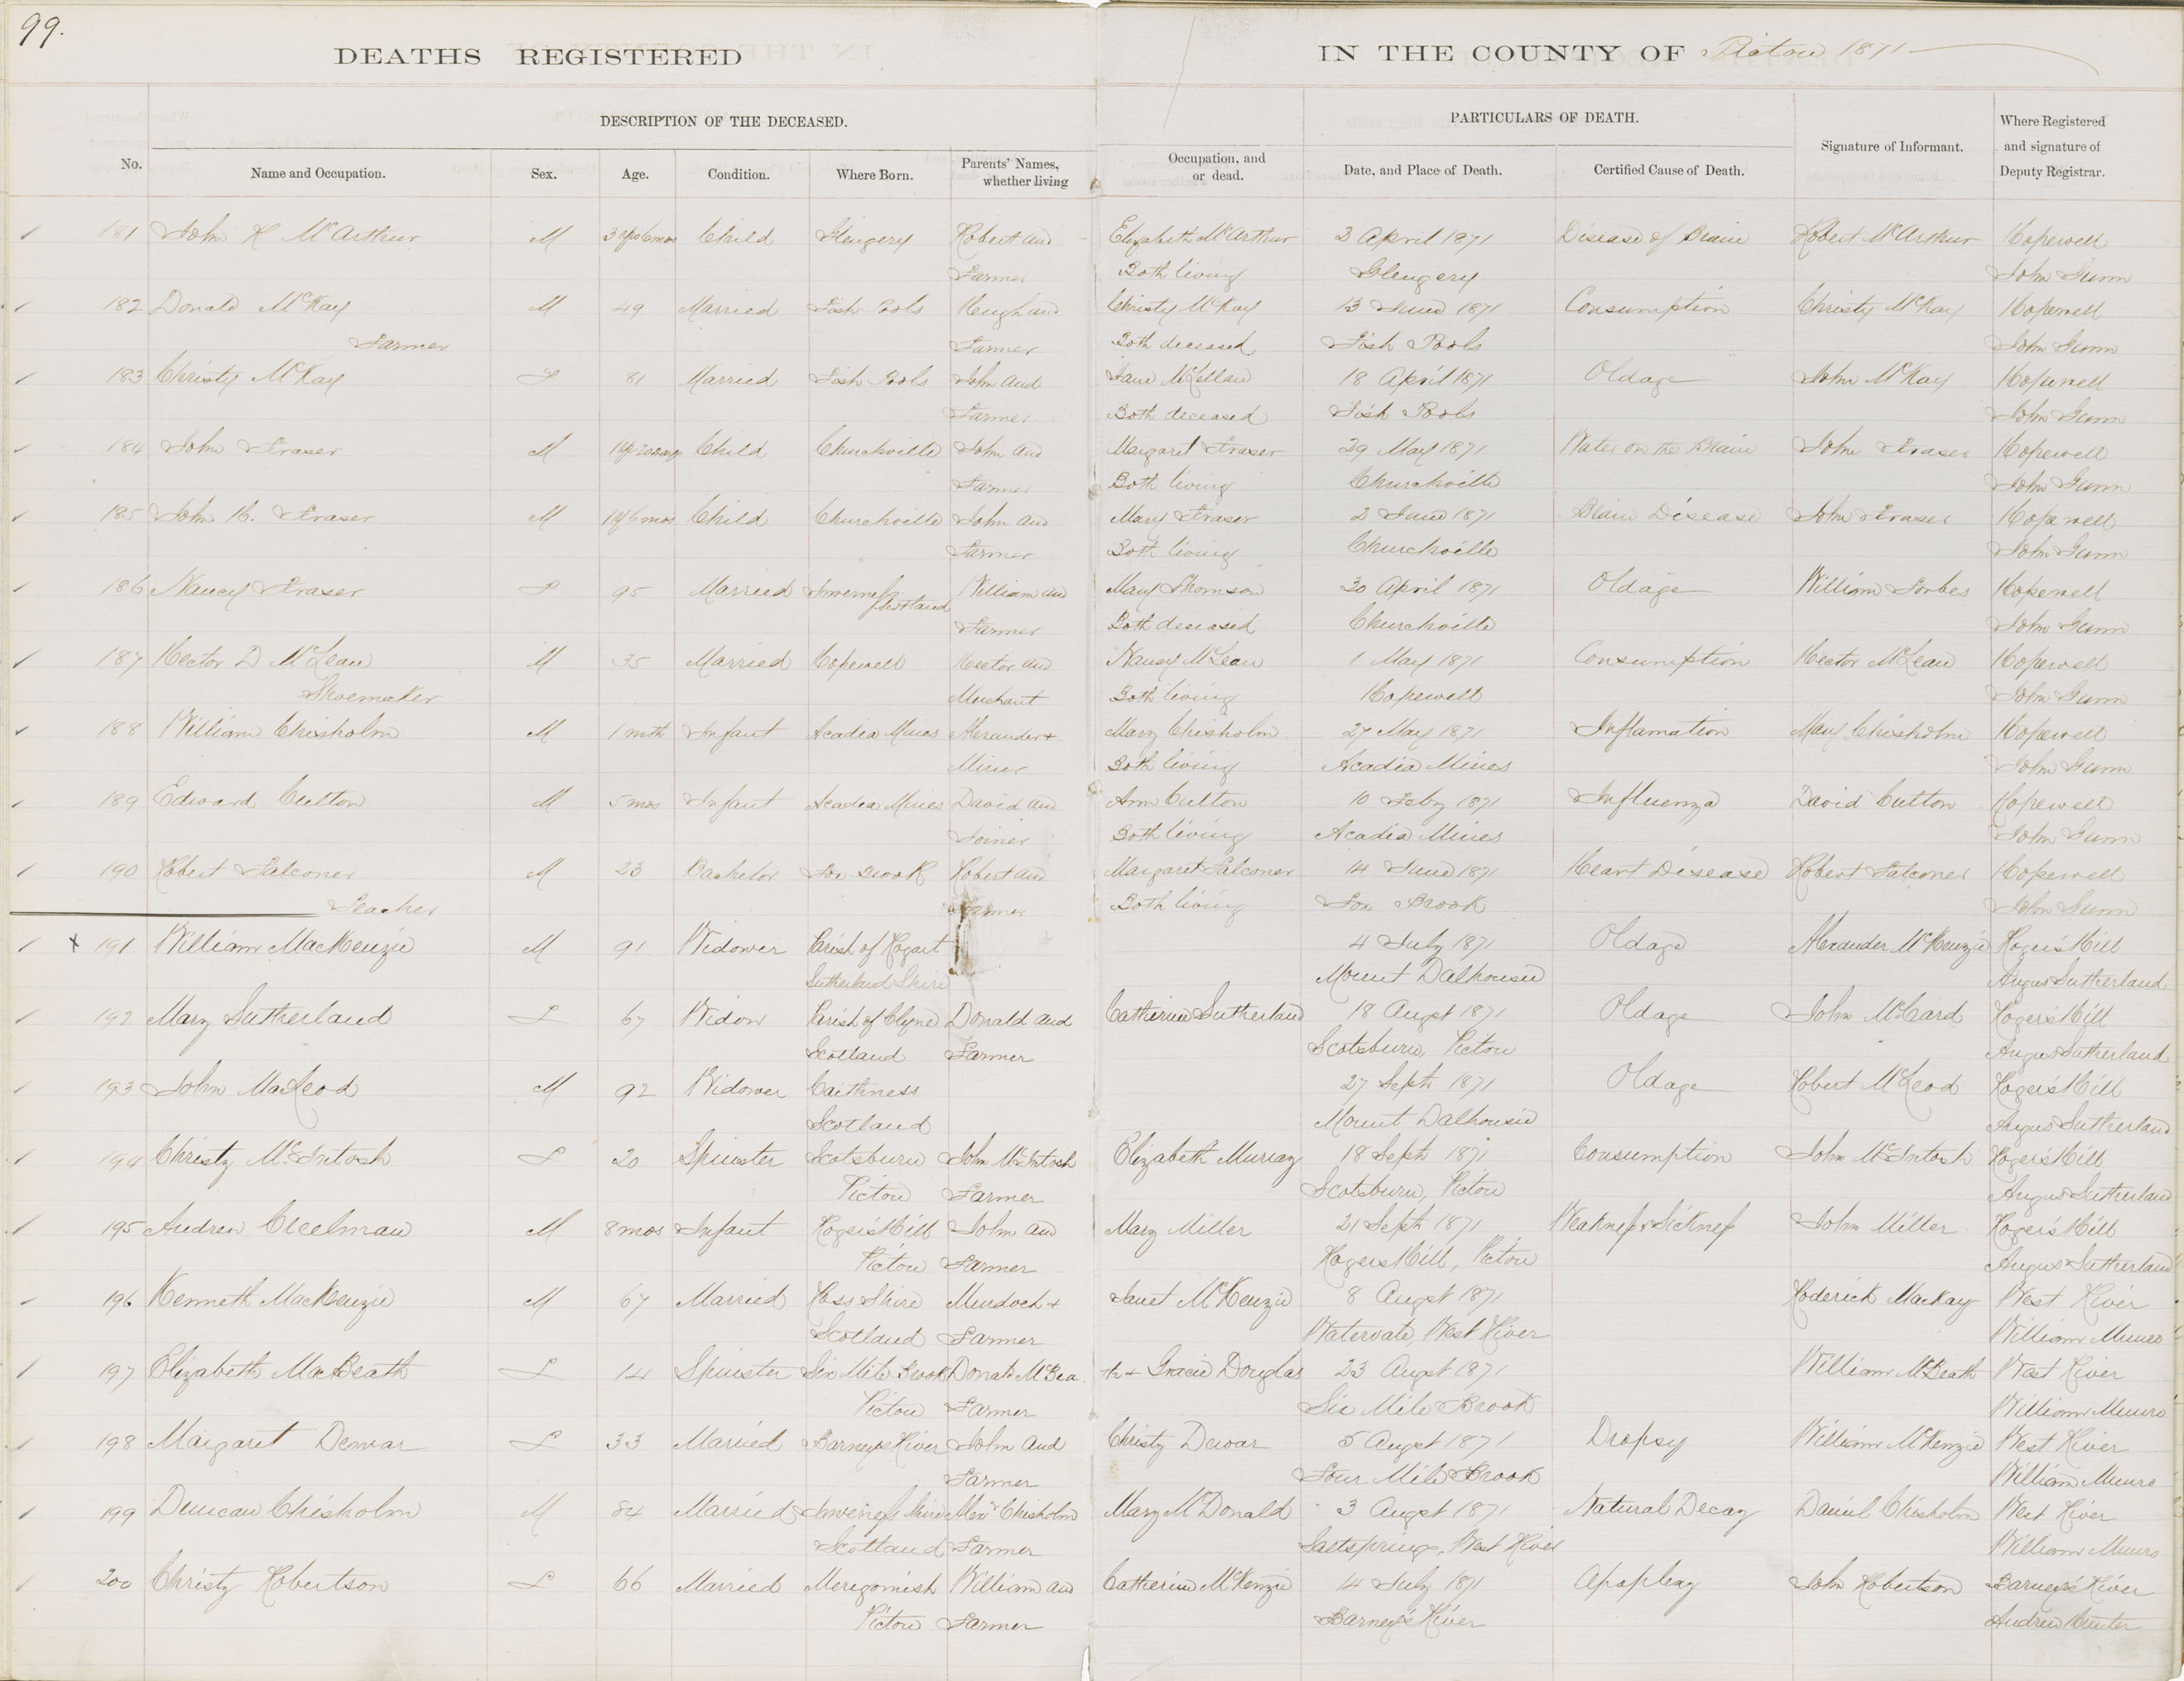 99.
DEATHS REGISTERED IN THE COUNTY OF Pictou 1871
DESCRIPTION OF THE DECEASED. PARTICULARS OF DEATH.
No. Name and Occupation. Sex. Age. Condition. Where Born. Parents' Names, whether living Occupation, and or dead. Date, and Place of Death. Certified Cause of Death. Signature of Informant. Where Registered and signature of Deputy Registrar.
181 John R McArthur M 3 yrs 6 mos Child Glengery Robert and Elizabeth McArthur 3 April 1871 Disease of Brain Robert McArthur Hopewell
Farmer Both living Glengery John Gunn
182 Donald McKay M 49 Married Fish Pools Hugh and Christy McKay 13 June 1871 Consumption Christy McKay Hopewell
Farmer Farmer Both deceased Fish Pools John Gunn
183 Christy McKay F 81 Married Fish Pools John and Jane McLellan 18 April 1871 Oldage John McKay Hopewell
Farmer Both deceased Fish Pools John Gunn
184 John Fraser M 1 yr 20 days Child Churchville John and Margaret Fraser 29 May 1871 Water on the Brain John Fraser Hopewell
Farmer Both living Churchville John Gunn
185 John H. Fraser M 1 y 6 mos Child Churchville John and Mary Fraser 2 June 1871 Brain Disease John Fraser Hopewell
Farmer Both living Churchville John Gunn
186 Nancy Fraser F 95 Married Inverness Scotland William and Mary Thomson 30 April 1871 Oldage William Forbes Hopewell
Farmer Both deceased Churchville John Gunn
187 Hector D McLean M 35 Married Hopewell Hector and Nancy McLean 1 May 1871 Consumption Hector McLean Hopewell
Shoemaker Merchant Both living Hopewell John Gunn
188 William Chisholm M 1 mth Infant Acadia Mines Alexander + Mary Chisholm 27 May 1871 Inflamation Mary Chisholm Hopewell
Miner Both living Acadia Mines John Gunn
189 Edward Culton M 5 mos Infant Acadia Mines David and Ann Culton 10 Feby 1871 Influenza David Culton Hopewell
Joiner Both living Acadia Mines John Gunn
190 Robert Falconer M 23 Bachelor Fox Brook Robert and Margaret Falconer 14 June 1871 Heart Disease Robert Falconer Hopewell
Teacher Farmer Both living Fox Brook John Gunn
x 191 William MacKenzie M 91 Widower Parish of Rogart 4 July 1871 Oldage Alexander McKenzie Roger's Hill
Sutherland Shire Mount Dalhousie Angus Sutherland
192 Mary Sutherland F 67 Widow Parish of Clyne Donald and Catherine Sutherland 18 Augst 1871 Oldage John McCard Roger's Hill
Scotland Farmer Scotsburn, Pictou Angus Sutherland
193 John MacLeod M 92 Widower Caithness 27 Septr 1871 Oldage Robert McLeod Roger's Hill
Scotland Mount Dalhousie Angus Sutherland
194 Christy McIntosh F 20 Spinster Scotsburn John McIntosh Elizabeth Murray 18 Septr 1871 Consumption John McIntosh Roger's Hill
Pictou Farmer Scotsburn, Pictou Angus Sutherland
195 Andrew Creelman M 8 mos Infant Roger's Hill John and Mary Miller 21 Septr 1871 Weakness & Sickness John Miller Roger's Hill
Pictou Farmer Rogers Hill, Pictou Angus Sutherland
196 Kenneth MacKenzie M 67 Married Ross Shire Murdoch + Janet McKenzie 8 Augst 1871 Roderick MacKay West River
Scotland Farmer Watervale, West River William Munro
197 Elizabeth MacBeath F 14 Spinster Six Mile Brook Donald McBea th + Gracie Douglas 23 Augst 1871 William McBeath West River
Pictou Farmer Six Mile Brook William Munro
198 Margaret Dewar F 33 Married Barney's River John and Christy Dewar 5 Augst 1871 Dropsy William McKenzie West River
Farmer Four Mile Brook William Munro
199 Duncan Chisholm M 84 Married Inverness Shire Alexr Chisholm Mary McDonald 3 Augst 1871 Natural Decay Daniel Chisholm West River
Scotland Farmer Saltsprings, West River William Munro
200 Christy Robertson F 66 Married Merigomish William and Catherine McKenzie 14 July 1871 Apoplexy John Robertson Barney's River
Pictou Farmer Barney's River Andrew Hunter